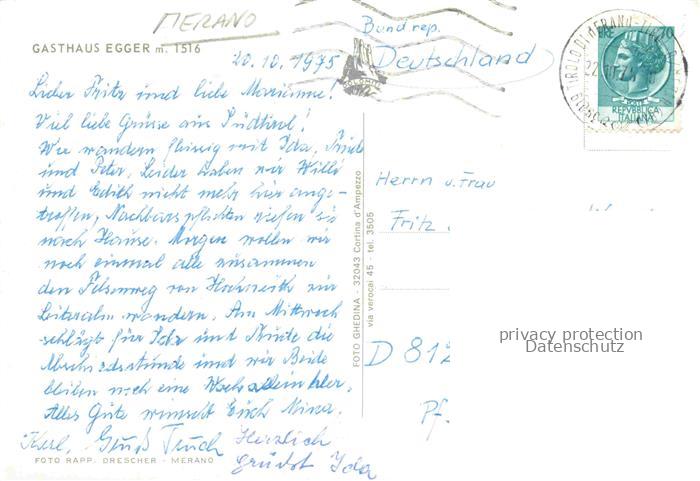 MERANO
GASTHAUS EGGER m. 1516
20.10.1975
Bundrep.
Deutschland
Lieber Fritz und liebe Marianne!
Viel liebe Grüsse aus Südtirol!
Wir wandern fleissig mit Ida,
und Peter. Leider haben wir Willi
und Edith nicht mehr hier ange-
troffen, Nachbarspflichten riefen sie
nach Hause. Morgen wollen wir
noch einmal alle zusammen
den Felsenweg von Hochmuth zur
Leiteralm wandern. Am Mittwoch
schlägt für Ida und die
Abschiedsstunde und wir Beide
bleiben noch eine Woche allein hier.
Alles Gute wünscht Euch Mina.
Gruß
Herzlich
grüßt Ida
FOTO RAPP. DRESCHER - MERANO
FOTO GHEDINA - 32043 Cortina d'Ampezzo
via verocai 45 - tel. 3505
70
REPVBBLICA
ITALIANA
Herrn u. Frau
Fritz
D 812
Pf.
privacy protection
Datenschutz